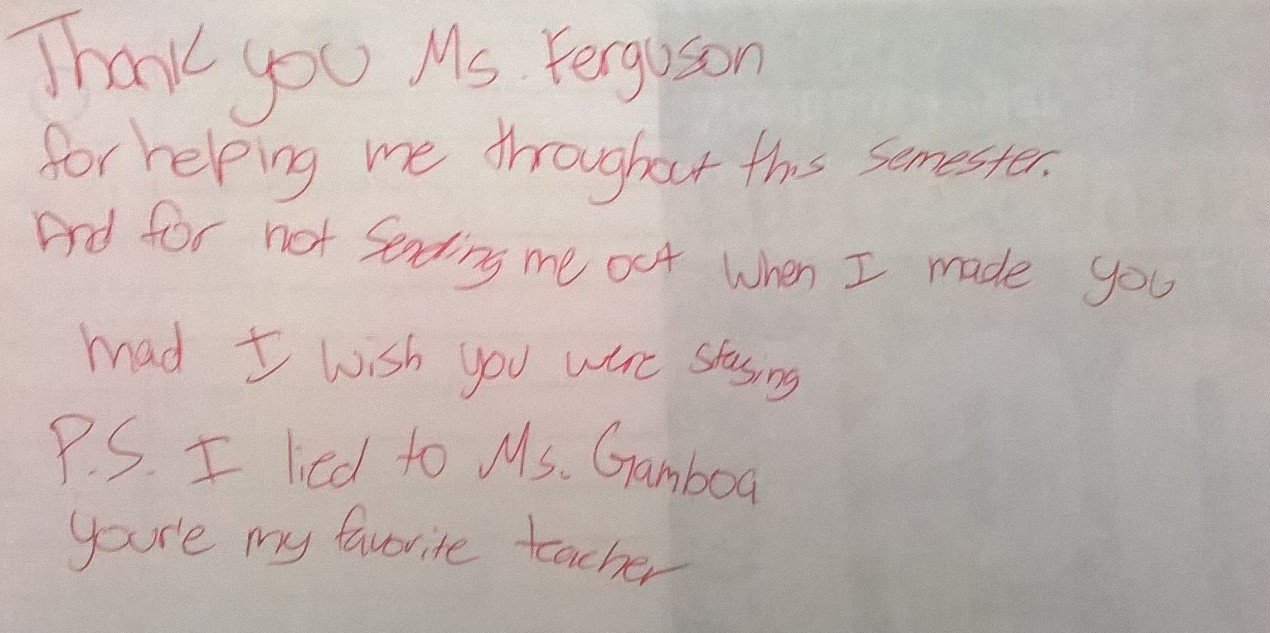 Thank you Ms. Ferguson
for helping me throughout this semester.
And for not sending me out when I made you
mad I wish you were staying
P.S. I lied to Ms. Gamboa
your'e my favorite teacher